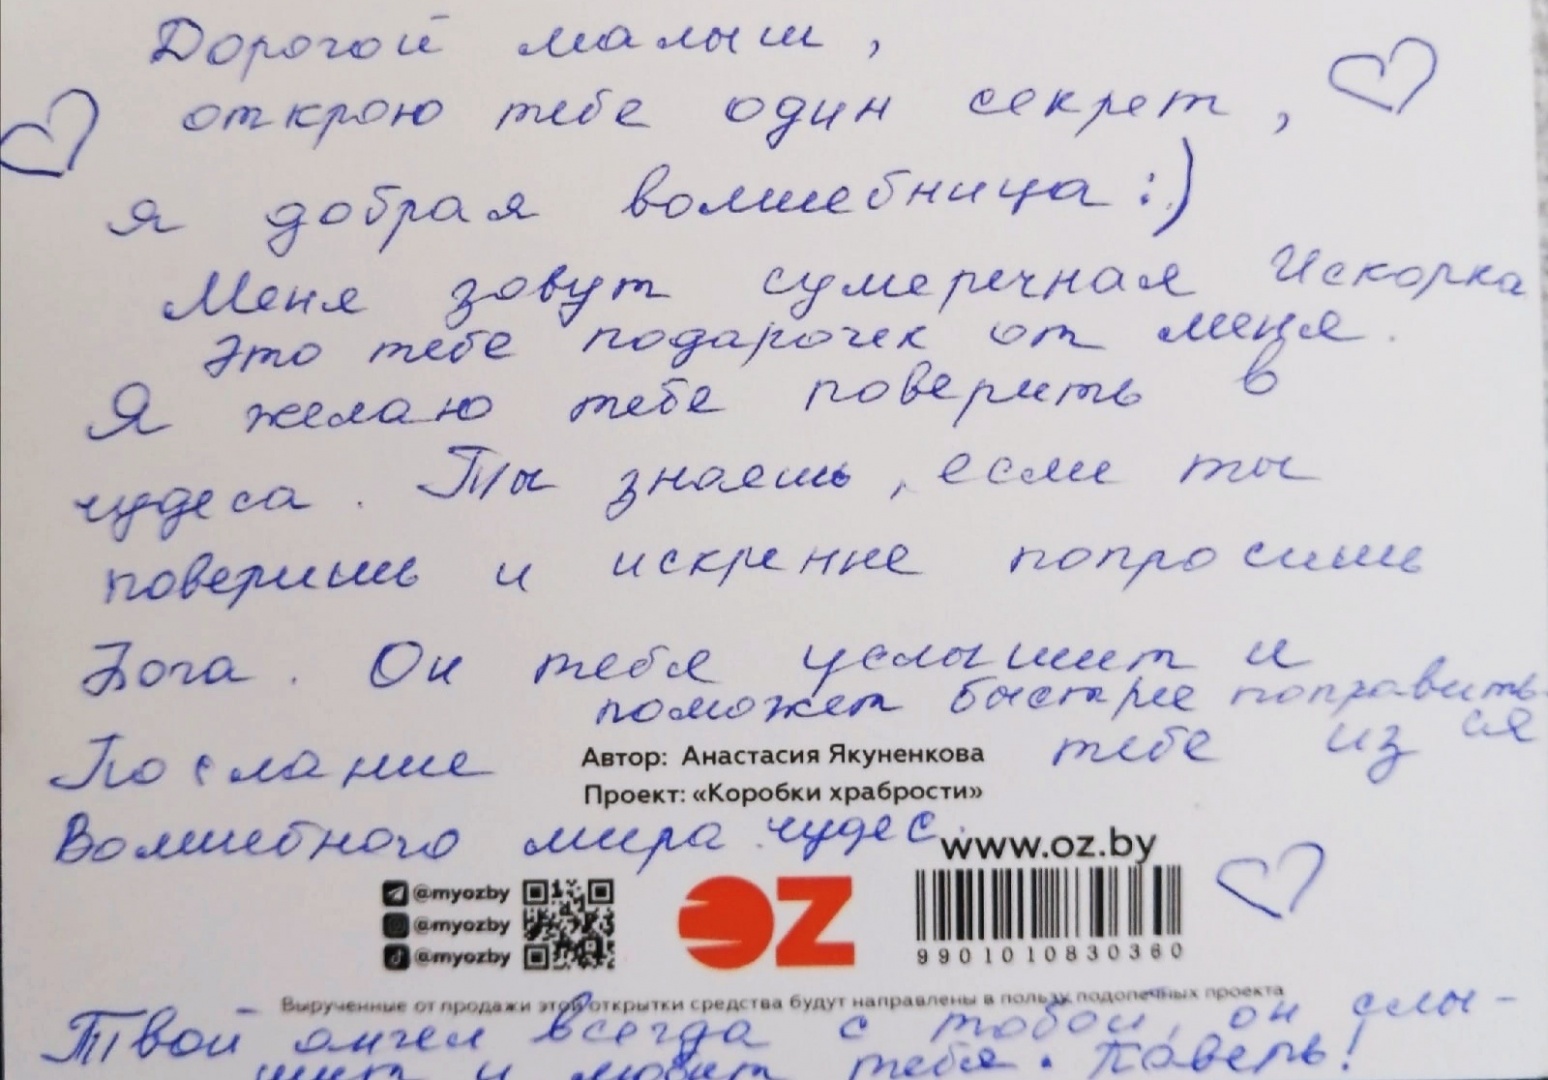 Дорогой малыш,
открою тебе один секрет,
я добрая волшебница :)
Меня зовут сумеречная Искорка
Это тебе подарочек от меня.
Я желаю тебе поверить в
чудеса. Ты знаешь, если ты
поверишь и искренне попросишь
Бога. Он тебя услышит и
поможет быстрее поправить-
ся
Послание тебе из
Автор: Анастасия Якуненкова
Проект: «Коробки храбрости»
Волшебного мира чудес.
www.oz.by
@myozby
@myozby
@myozby
OZ
9901010830360
Вырученные от продажи этой открытки средства будут направлены в пользу подопечных проекта
Твой ангел всегда с тобой, он слы-
шит и любит тебя. Поверь!